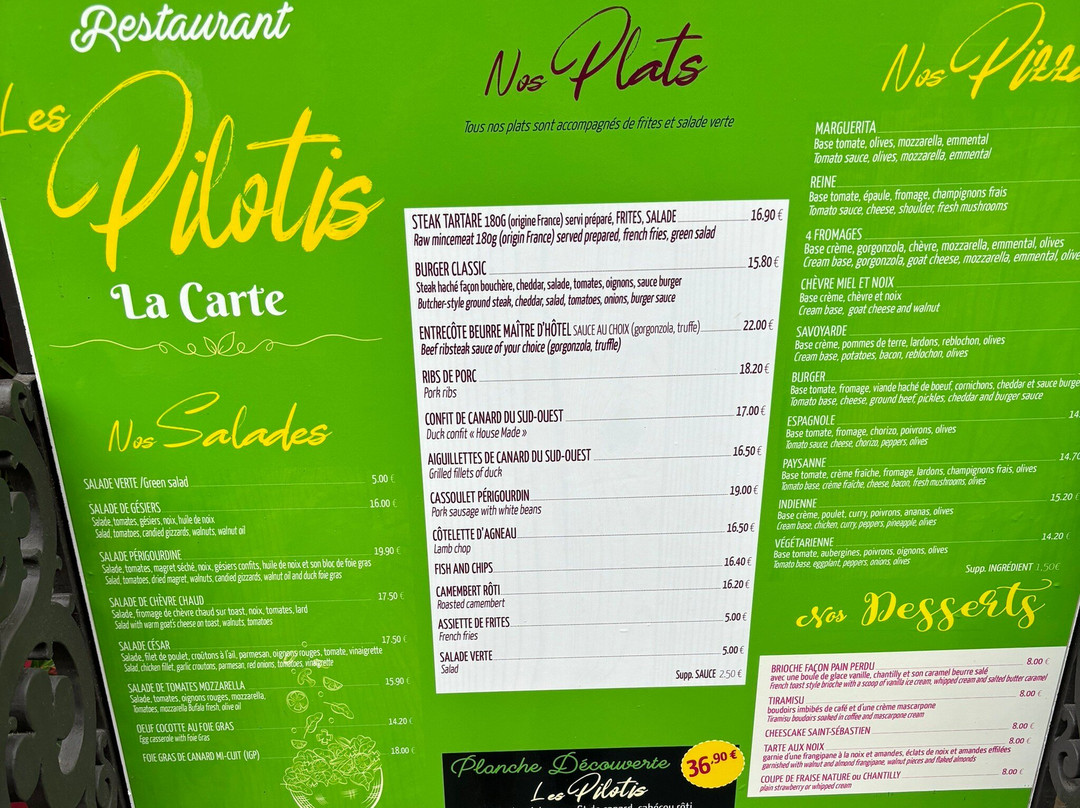 Restaurant
Les
Pilotis
La Carte
Nos Salades
SALADE VERTE /Green salad 5.00 €
SALADE DE GÉSIERS 16.00 €
Salade, tomates, gésiers, noix, huile de noix
Salad, tomatoes, candied gizzards, walnuts, walnut oil
SALADE PÉRIGOURDINE 19.90 €
Salade, tomates, magret séché, noix, gésiers confits, huile de noix et son bloc de foie gras
Salad, tomatoes, dried magret, walnuts, candied gizzards, walnut oil and duck foie gras
SALADE DE CHÈVRE CHAUD 17.50 €
Salade, fromage de chèvre chaud sur toast, noix, tomates, lard
Salad with warm goat's cheese on toast, walnuts, tomatoes
SALADE CÉSAR 17.50 €
Salade, filet de poulet, croûtons à l'ail, parmesan, oignons rouges, tomate, vinaigrette
Salad, chicken fillet, garlic croutons, parmesan, red onions, tomatoes, vinaigrette
SALADE DE TOMATES MOZZARELLA 15.90 €
Salade, tomates, oignons rouges, mozzarella,
Tomatoes, mozzarella Bufala fresh, olive oil
OEUF COCOTTE AU FOIE GRAS 14.20 €
Egg casserole with foie Gras
FOIE GRAS DE CANARD MI-CUIT (IGP) 18.00 €
Nos Plats
Tous nos plats sont accompagnés de frites et salade verte
STEAK TARTARE 180G (origine France) servi préparé, FRITES, SALADE 16.90 €
Raw mincemeat 180g (origin France) served prepared, french fries, green salad
BURGER CLASSIC 15.80 €
Steak haché façon bouchère, cheddar, salade, tomates, oignons, sauce burger
Butcher-style ground steak, cheddar, salad, tomatoes, onions, burger sauce
ENTRECÔTE BEURRE MAÎTRE D'HÔTEL SAUCE AU CHOIX (gorgonzola, truffe) 22.00 €
Beef ribsteak sauce of your choice (gorgonzola, truffle)
RIBS DE PORC 18.20 €
Pork ribs
CONFIT DE CANARD DU SUD-OUEST 17.00 €
Duck confit « House Made »
AIGUILLETTES DE CANARD DU SUD-OUEST 16.50 €
Grilled fillets of duck
CASSOULET PÉRIGOURDIN 19.00 €
Pork sausage with white beans
CÔTELETTE D'AGNEAU 16.50 €
Lamb chop
FISH AND CHIPS 16.40 €
CAMEMBERT RÔTI 16.20 €
Roasted camembert
ASSIETTE DE FRITES 5.00 €
French fries
SALADE VERTE 5.00 €
Salad
Supp. SAUCE 2.50 €
Planche Découverte
Les Pilotis
36.90 €
canard, cabécou rôti
Nos Pizza
MARGUERITA
Base tomate, olives, mozzarella, emmental
Tomato sauce, olives, mozzarella, emmental
REINE
Base tomate, épaule, fromage, champignons frais
Tomato sauce, cheese, shoulder, fresh mushrooms
4 FROMAGES
Base crème, gorgonzola, chèvre, mozzarella, emmental, olives
Cream base, gorgonzola, goat cheese, mozzarella, emmental, olive
CHÈVRE MIEL ET NOIX
Base crème, chèvre et noix
Cream base, goat cheese and walnut
SAVOYARDE
Base crème, pommes de terre, lardons, reblochon, olives
Cream base, potatoes, bacon, reblochon, olives
BURGER
Base tomate, fromage, viande haché de boeuf, cornichons, cheddar et sauce burge
Tomato base, cheese, ground beef, pickles, cheddar and burger sauce
ESPAGNOLE 14.
Base tomate, fromage, chorizo, poivrons, olives
Tomato sauce, cheese, chorizo, peppers, olives
PAYSANNE 14.70
Base tomate, crème fraîche, fromage, lardons, champignons frais, olives
Tomato base, crème fraîche, cheese, bacon, fresh mushrooms, olives
INDIENNE 15.20 €
Base crème, poulet, curry, poivrons, ananas, olives
Cream base, chicken, curry, peppers, pineapple, olives
VÉGÉTARIENNE 14.20 €
Base tomate, aubergines, poivrons, oignons, olives
Tomato base, eggplant, peppers, onions, olives
Supp. INGRÉDIENT 1,50€
Nos Desserts
BRIOCHE FAÇON PAIN PERDU 8.00 €
avec une boule de glace vanille, chantilly et son caramel beurre salé
French toast style brioche with a scoop of vanilla ice cream, whipped cream and salted butter caramel
TIRAMISU 8.00 €
boudoirs imbibés de café et d'une crème mascarpone
Tiramisu boudoirs soaked in coffee and mascarpone cream
CHEESCAKE SAINT-SÉBASTIEN 8.00 €
TARTE AUX NOIX 8.00 €
garnie d'une frangipane à la noix et amandes, éclats de noix et amandes effilées
garnished with walnut and almond frangipane, walnut pieces and flaked almonds
COUPE DE FRAISE NATURE ou CHANTILLY 8.00 €
plain strawberry or whipped cream